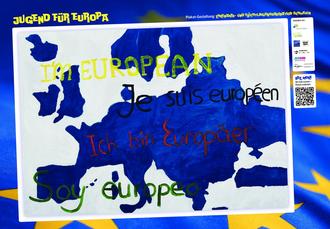 JUGEND FÜR EUROPA
Plakat-Gestaltung
I'M EUROPEAN
Je suis européen
Ich bin Europäer
Soy europeo